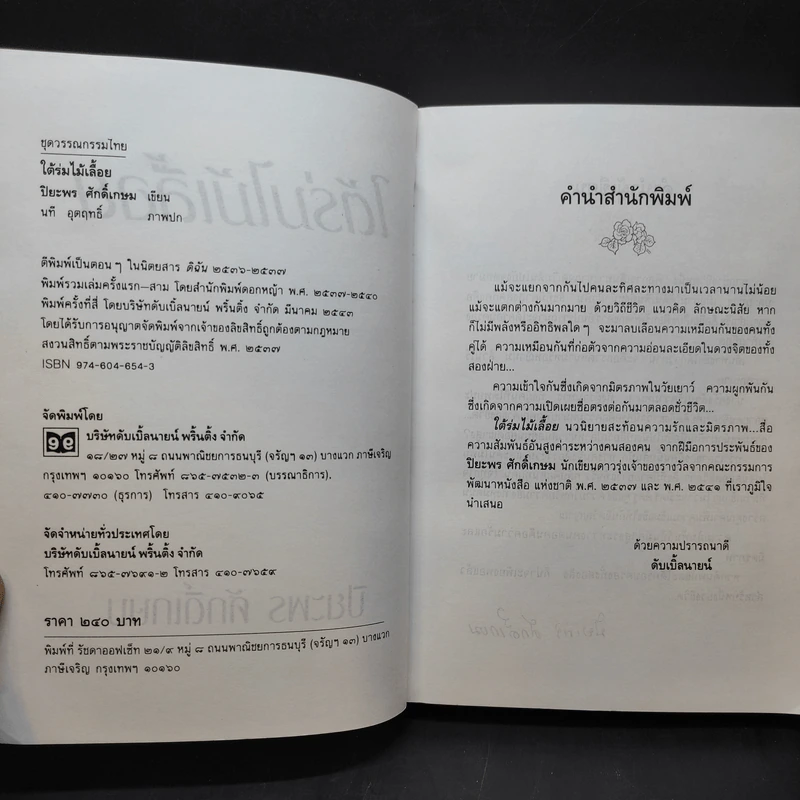 ชุดวรรณกรรมไทย
ใต้ร่มไม้เลื้อย
ปิยะพร ศักดิ์เกษม เขียน
นที อุตฤทธิ์ ภาพปก
ตีพิมพ์เป็นตอนๆ ในนิตยสาร ดิฉัน ๒๕๓๖-๒๕๓๗
พิมพ์รวมเล่มครั้งแรก-สาม โดยสำนักพิมพ์ดอกหญ้า พ.ศ. ๒๕๓๗-๒๕๔๐
พิมพ์ครั้งที่สี่ โดยบริษัทดับเบิ้ลนายน์ พริ้นติ้ง จำกัด มีนาคม ๒๕๔๓
โดยได้รับการอนุญาตจัดพิมพ์จากเจ้าของลิขสิทธิ์ถูกต้องตามกฎหมาย
สงวนสิทธิ์ตามพระราชบัญญัติลิขสิทธิ์ พ.ศ. ๒๕๓๗
ISBN 974-604-654-3
จัดพิมพ์โดย
บริษัทดับเบิ้ลนายน์ พริ้นติ้ง จำกัด
๑๘/๒๗ หมู่ ๘ ถนนพาณิชยการธนบุรี (จรัญฯ ๑๓) บางแวก ภาษีเจริญ
กรุงเทพฯ ๑๐๑๖๐ โทรศัพท์ ๘๖๕-๗๕๓๒-๓ (บรรณาธิการ).
๔๑๐-๗๗๓๐ (ธุรการ) โทรสาร ๔๑๐-๙๐๖๕
จัดจำหน่ายทั่วประเทศโดย
บริษัทดับเบิ้ลนายน์ พริ้นติ้ง จำกัด
โทรศัพท์ ๘๖๕-๗๖๙๑-๒ โทรสาร ๔๑๐-๗๖๕๙
ราคา ๒๔๐ บาท
พิมพ์ที่ รัชดาออฟเซ็ท ๒๑/๙ หมู่ ๘ ถนนพาณิชยการธนบุรี (จรัญฯ ๑๓) บางแวก
ภาษีเจริญ กรุงเทพฯ ๑๐๑๖๐
คำนำสำนักพิมพ์
แม้จะแยกจากกันไปคนละทิศละทางมาเป็นเวลานานไม่น้อย
แม้จะแตกต่างกันมากมาย ด้วยวิถีชีวิต แนวคิด ลักษณะนิสัย หาก
ก็ไม่มีพลังหรืออิทธิพลใดๆ จะมาลบเลือนความเหมือนกันของคนทั้ง
คู่ได้ ความเหมือนกันที่ก่อตัวจากความอ่อนละเอียดในดวงจิตของทั้ง
สองฝ่าย...
ความเข้าใจกันซึ่งเกิดจากมิตรภาพในวัยเยาว์ ความผูกพันกัน
ซึ่งเกิดจากความเปิดเผยซื่อตรงต่อกันมาตลอดชั่วชีวิต...
ใต้ร่มไม้เลื้อย นวนิยายสะท้อนความรักและมิตรภาพ...สื่อ
ความสัมพันธ์อันสูงค่าระหว่างคนสองคน จากฝีมือการประพันธ์ของ
ปิยะพร ศักดิ์เกษม นักเขียนดาวรุ่งเจ้าของรางวัลจากคณะกรรมการ
พัฒนาหนังสือ แห่งชาติ พ.ศ. ๒๕๓๗ และ พ.ศ. ๒๕๔๑ ที่เราภูมิใจ
นำเสนอ
ด้วยความปรารถนาดี
ดับเบิ้ลนายน์